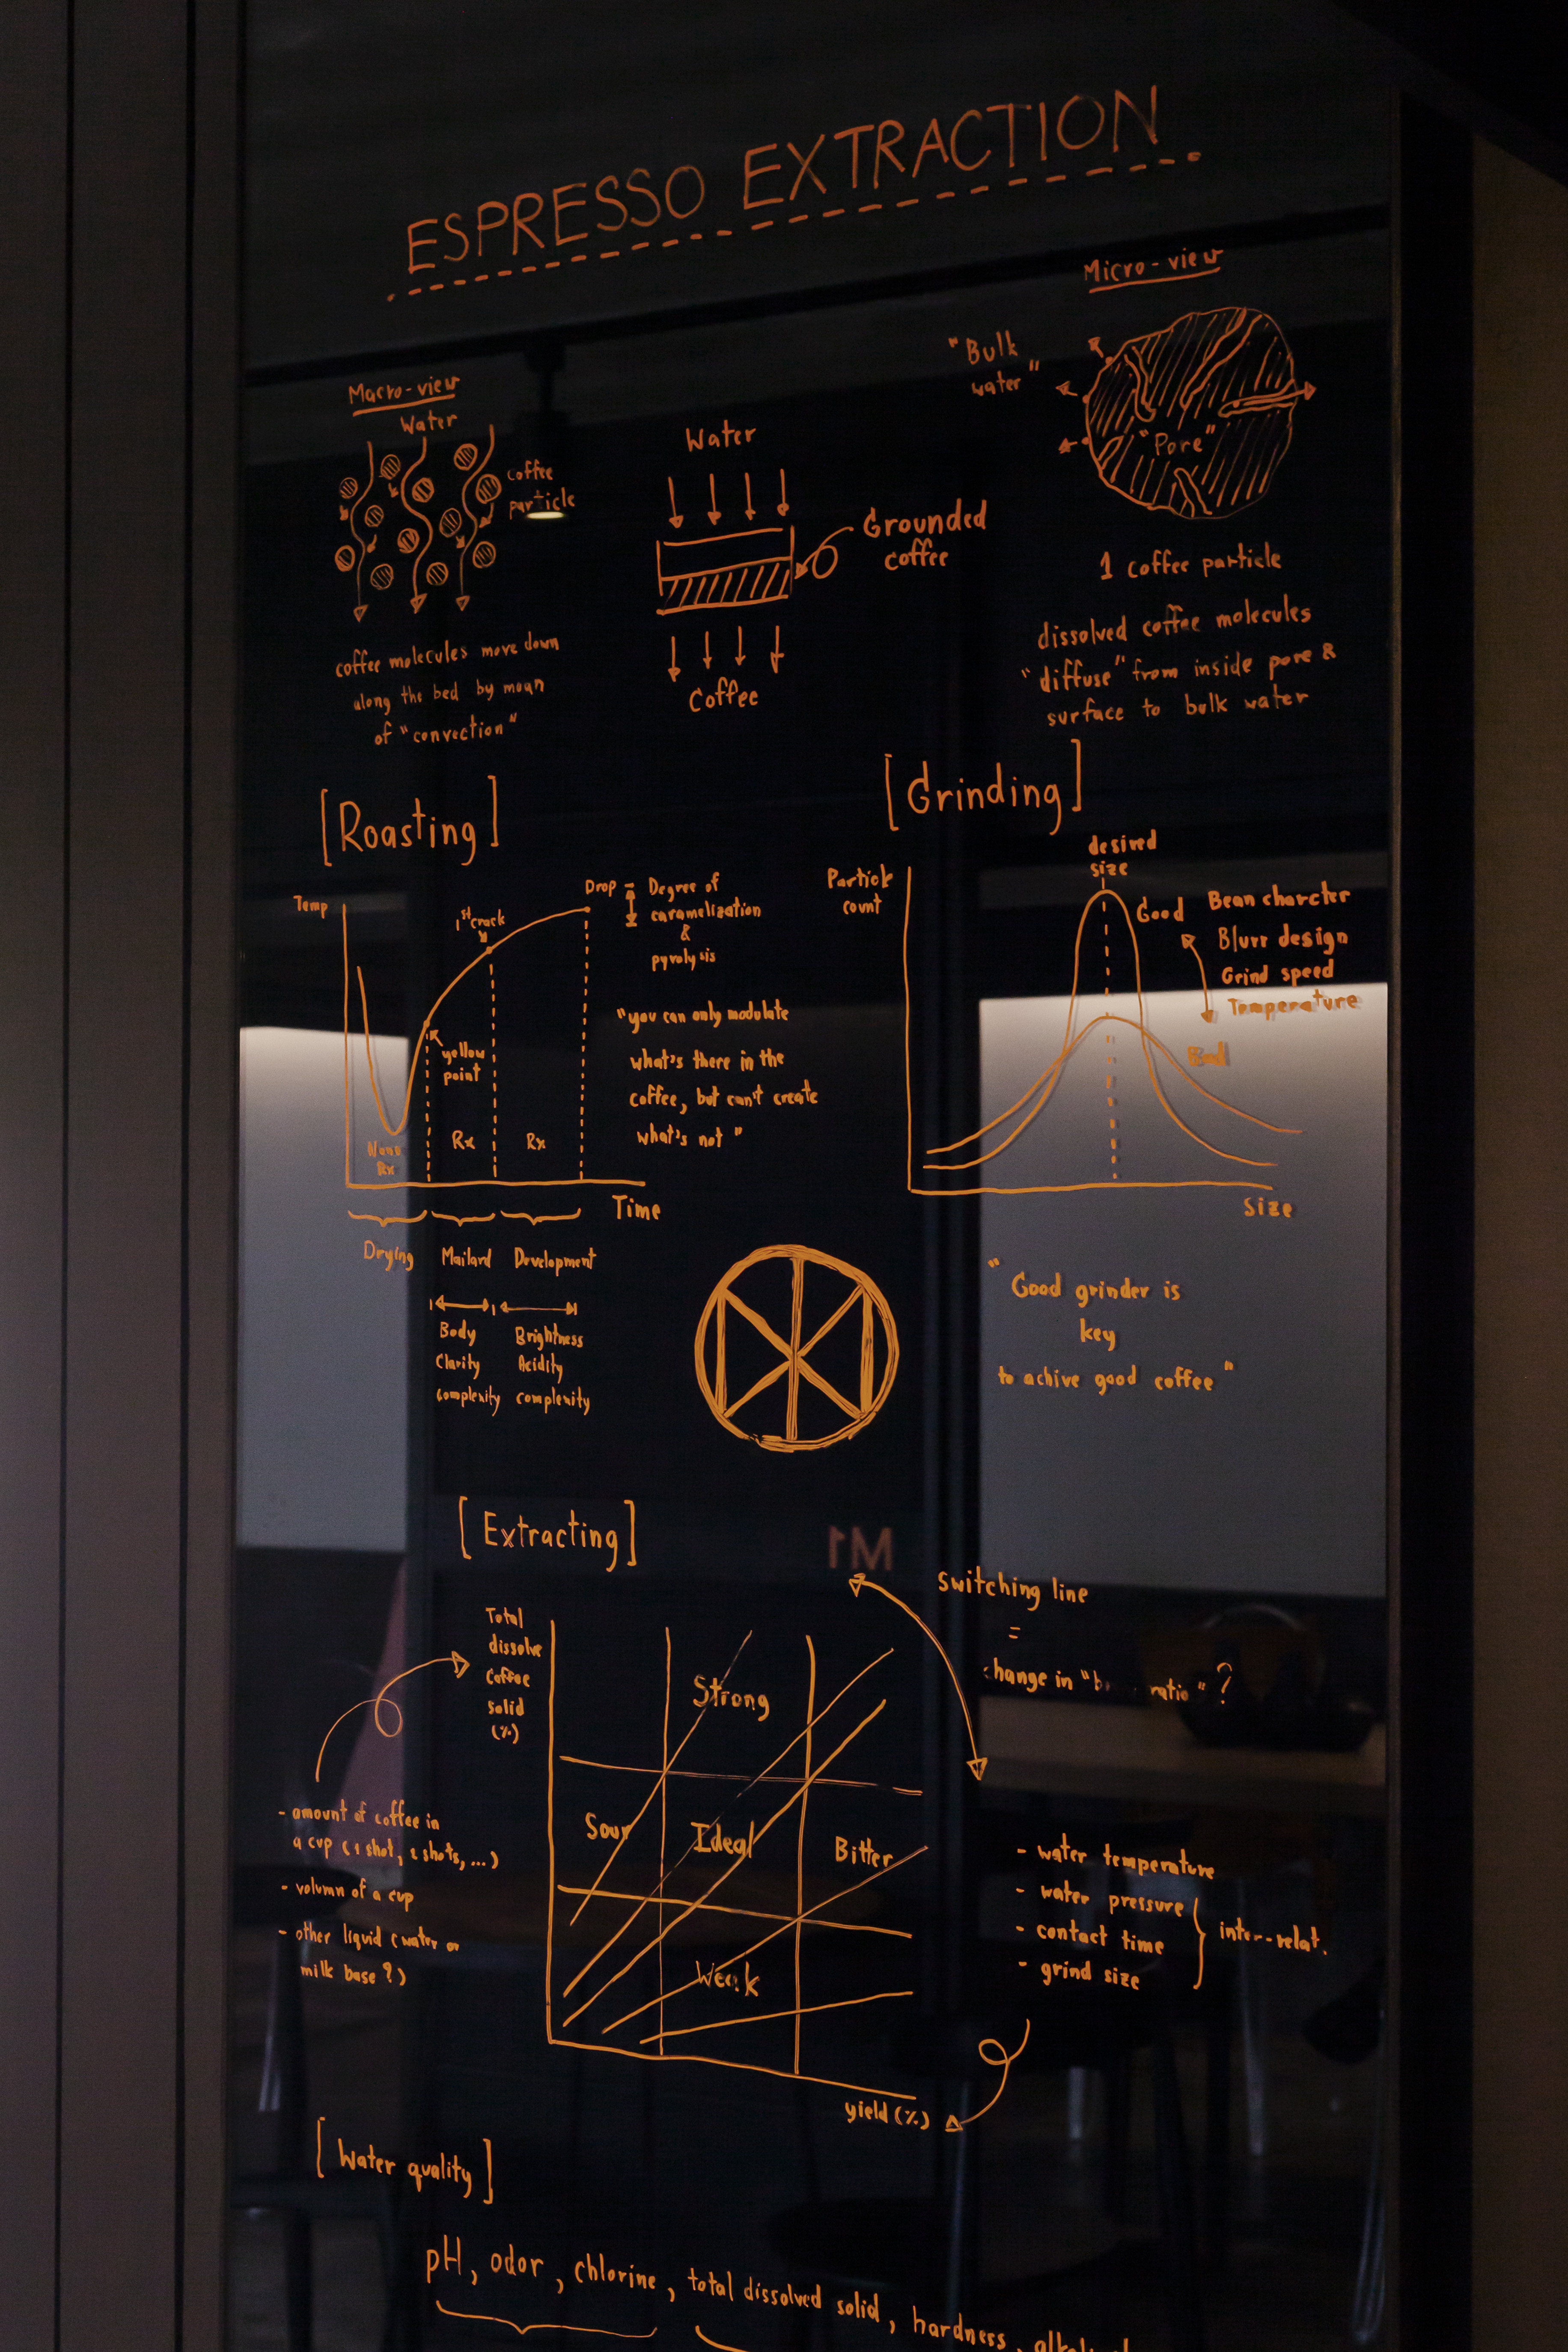 ESPRESSO EXTRACTION
Macro-view
Water
coffee
particle
coffee molecules move down
along the bed by mean
of "convection"
Water
Grounded
coffee
Coffee
Micro-view
"Bulk
water"
"Pore"
1 coffee particle
dissolved coffee molecules
"diffuse" from inside pore &
surface to bulk water
[Roasting]
Temp
1st crack
Drop
Degree of
caramelization
&
pyrolysis
yellow
point
Rx
Rx
Rx
Time
Drying
Mailard
Development
Body
Clarity
complexity
Brightness
Acidity
complexity
"you can only modulate
what's there in the
coffee, but can't create
what's not"
[Grinding]
Particle
count
desired
size
Good
Bean charcter
Blurr design
Grind speed
Temperature
size
"Good grinder is
key
to achive good coffee"
[Extracting]
M1
Total
dissolve
Coffee
solid
(%)
Strong
Sour
Ideal
Bitter
Weak
yield (%)
switching line
=
change in " ratio"?
- amount of coffee in
a cup (1 shot, 2 shots, ...)
- volumn of a cup
- other liquid (water or
milk base?)
- water temperature
- water pressure
- contact time
- grind size
inter-relat.
[Water quality]
pH, odor, chlorine, total dissolved solid, hardness,